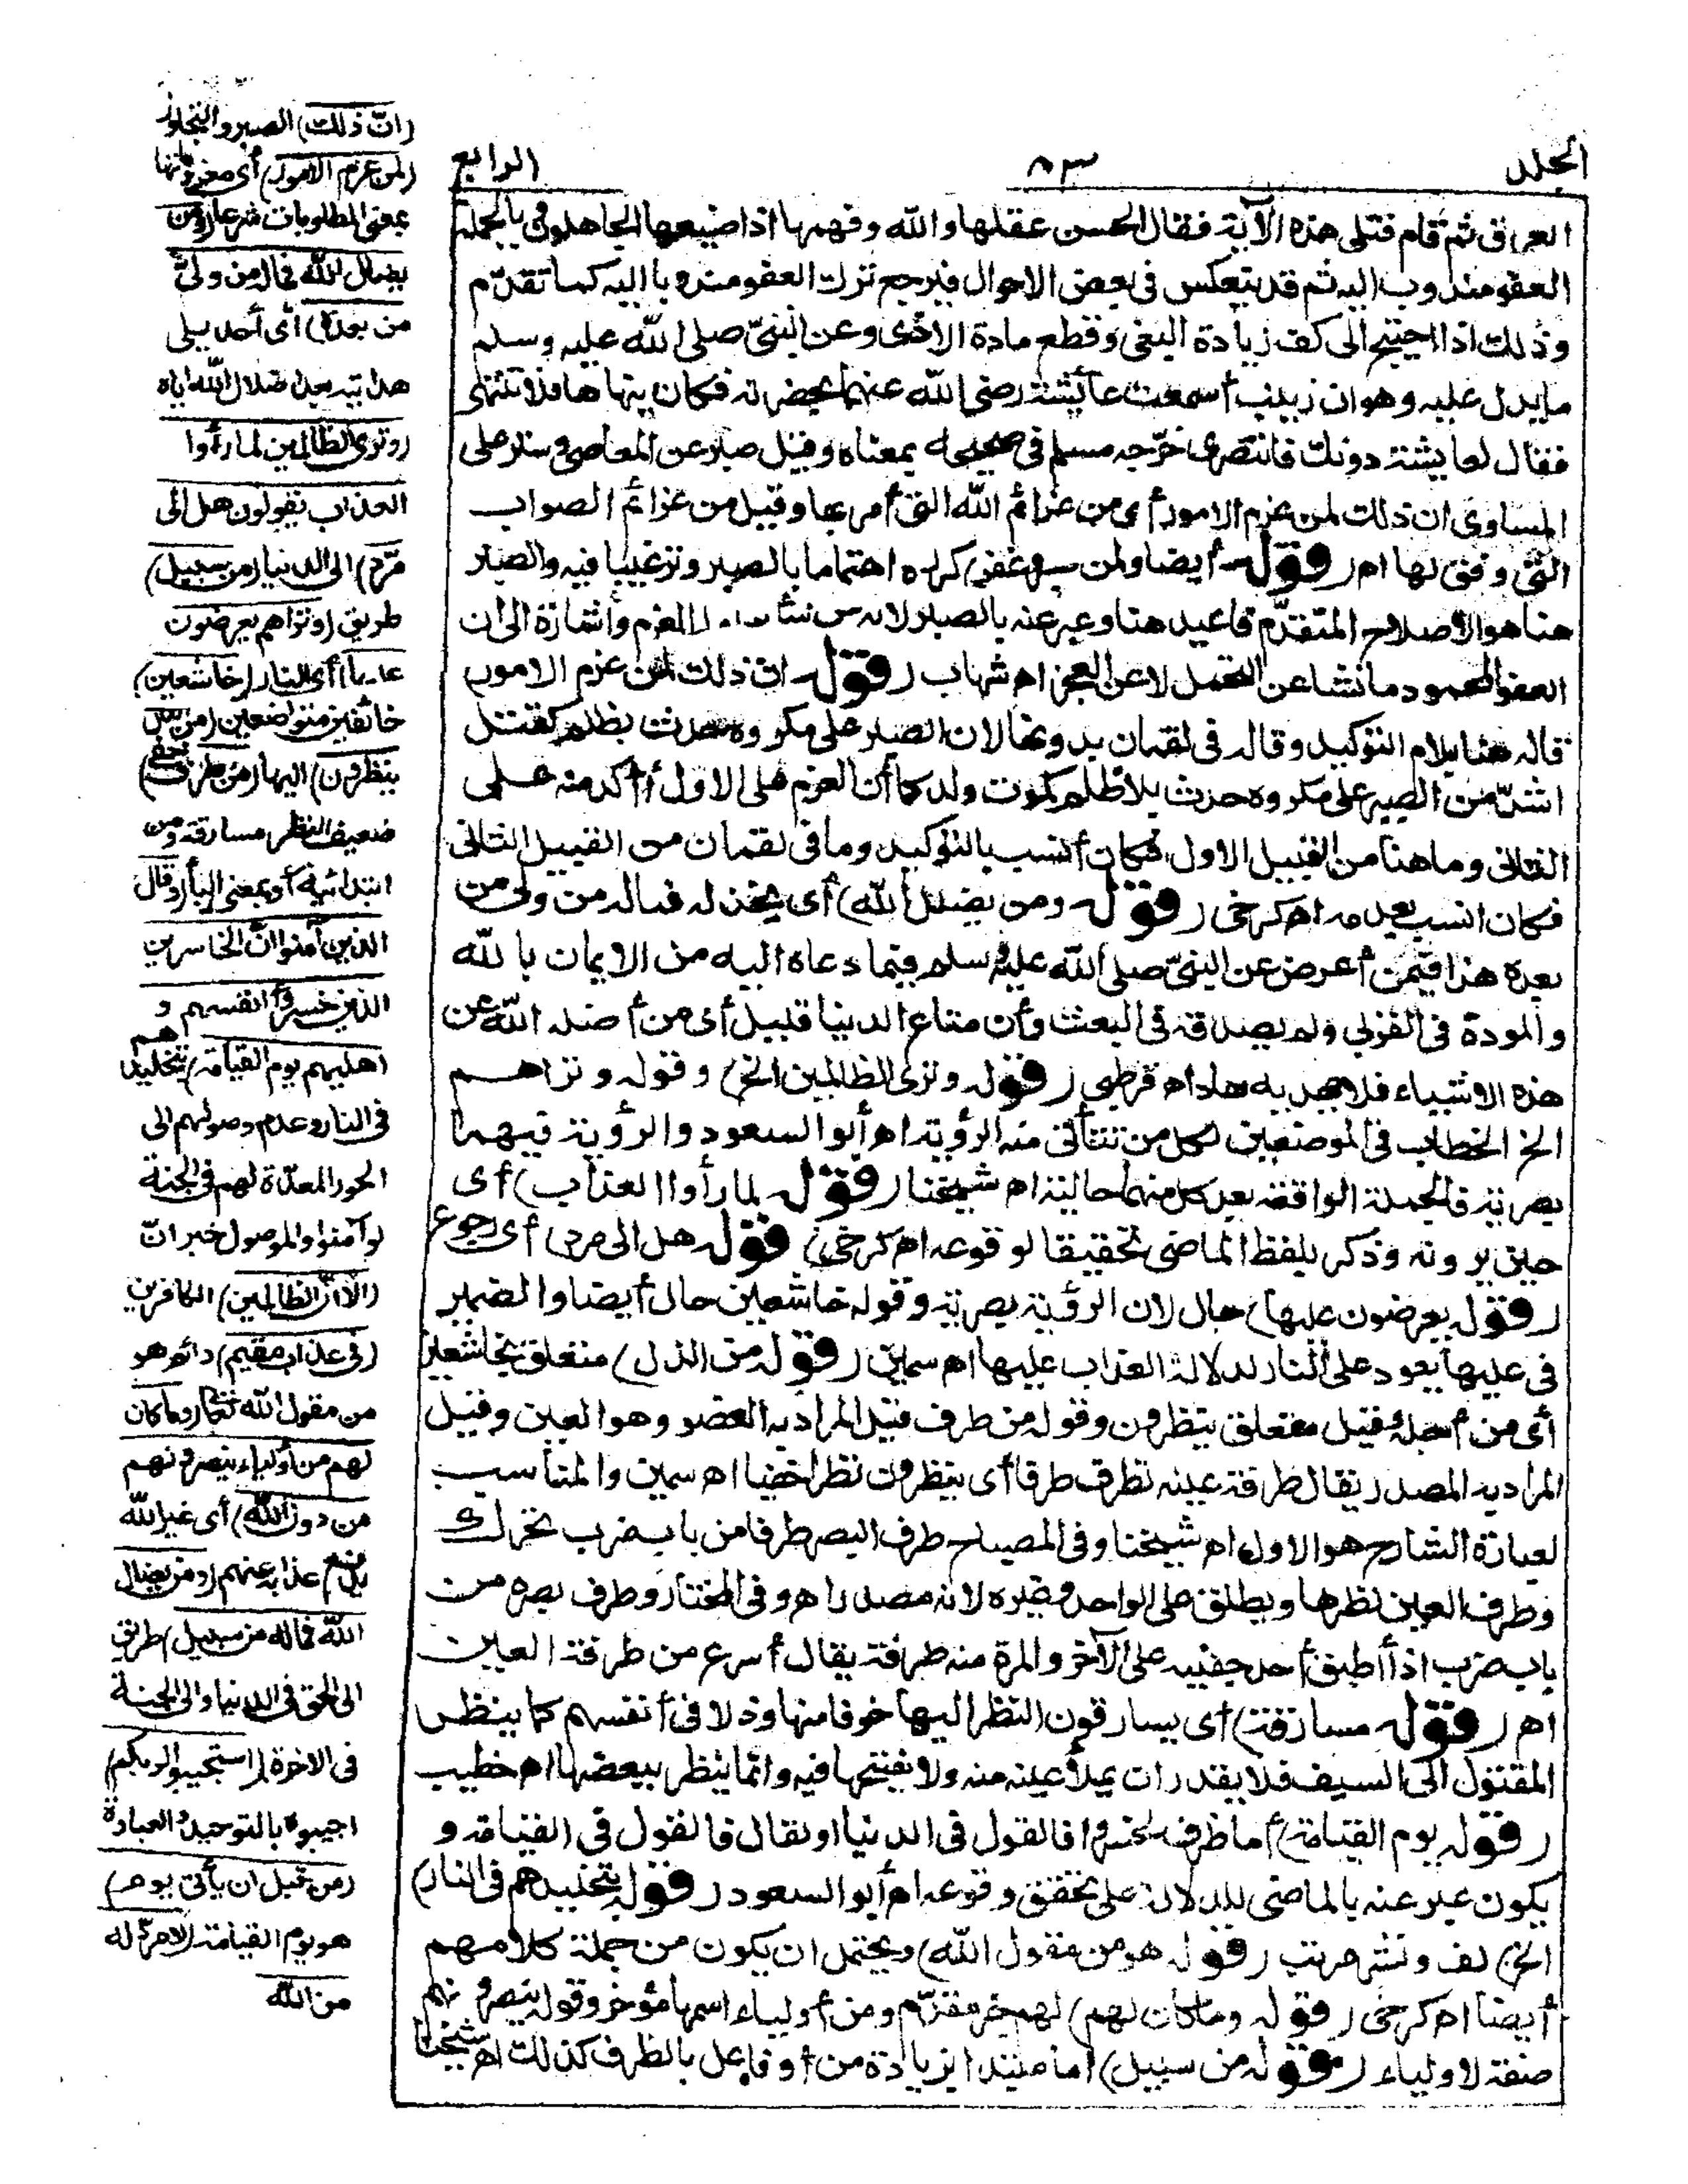 الجلد
٨٣
الرابع
العراق ثم قام فتلى هذه الآية فقال الحسن عقلها والله وفهمها اذا ضيعها الجاهلون بالجملة
العفو مندوب اليه ثم قد ينعكس فى بعض الاحوال فيرجع ترك العفو مندوبا اليه كما تقدّم
وذلك اذا احتيج الى كف زيادة البغى وقطع مادة الاذى وعن النبىّ صلى الله عليه وسلم
مايدل عليه وهو ان زينب أسمعت عائشة رضى الله عنهما بحضرته فكان ينهاها فلا تنتهى
فقال لعايشة دونك فانتصرى خرّجه مسلم فى صحيحه بمعناه وقيل صبر عن المعاصى وستر على
المساوى ان ذلك لمن عزم الامور أى من عزائم الله التى أمر بها وقيل من عزائم الصواب
التى وفق لها اه (قوله أيضا ولمن صبر وغفر) كرره اهتماما بالصبر وترغيبا فيه والصبر
هنا هو الاصلاح المتقدّم فاعيد هنا وعبر عنه بالصبر لانه من شأن العزم واشارة الى ان
العفو المحمود ما نشا عن التحمل لا عن العجز اه شهاب (قوله ان ذلك لمن عزم الامور
قاله هنا بلام التوكيد وقاله فى لقمان بدونها لان الصبر على مكروه حدث بظلم كقتل
اشدّ من الصبر على مكروه حدث بلا ظلم كموت ولد كما أن العزم على الاول أكد منه على
الثانى وما هنا من القبيل الاول فكان أنسب بالتوكيد وما فى لقمان من القبيل الثانى
فكان انسب بعدمه اه كرخى (قوله ومن يضلل الله) أى يخذله فماله من ولى من
بعده هذا فيمن أعرض عن النبىّ صلى الله عليه وسلم فيما دعاه اليه من الايمان بالله
والمودة فى القربى ولم يصدقه فى البعث وأن متاع الدنيا قليل أى من أضله الله عن
هذه الاشياء فلا يهديه هاد اه قرطبى (قوله وترى الظالمين الخ) وقوله وتراهم
الخ الخطاب فى الموضعين لكل من تتأتى منه الرؤية اه أبو السعود والرؤية فيهما
بصرية فالجملة الواقعة بعد كل منهما حالية اه شيخنا (قوله لما رأوا العذاب) أى
حين يرونه وذكر بلفظ الماضى تحقيقا لوقوعه اه كرخى) قوله هل الى مرد) أى رجوع
(قوله يعرضون عليها) حال لان الرؤية بصرية وقوله خاشعين حال أيضا والضمير
فى عليها يعود على النار لدلالة العذاب عليها اه سمين (قوله من الذل) متعلق بخاشعين
أى من أجله وقيل متعلق بينظرون وقوله من طرف قيل المراد به العضو وهو العين وقيل
المراد به المصدر يقال طرفت عينه تطرف طرفا أى ينظرون نظرا خفيا اه سمين والمناسب
لعبارة الشارح هو الاول اه شيخنا وفى المصباح طرف البصر طرفا من باب ضرب تحرك
وطرف العين نظرها ويطلق على الواحد وغيره لانه مصدر اه وفى المختار وطرف بصره من
باب ضرب اذا أطبق أحد جفنيه على الآخر والمرة منه طرفة يقال أسرع من طرفة العين
اه (قوله مسارقة) أى يسارقون النظر اليها خوفا منها وذلا فى أنفسهم كما ينظر
المقتول الى السيف فلا يقدر ان يملأ عينه منه ولا يفتحها فيه وانما ينظر ببعضها اه خطيب
(قوله يوم القيامة) أما ظرف لخسروا فالقول فى الدنيا او لقال فالقول فى القيامة و
يكون عبر عنه بالماضى للدلالة على تحقق وقوعه اه أبو السعود (قوله بتخليدهم فى النار)
الخ) لف ونشر مرتب (قوله هو من مقول الله) ويحتمل ان يكون من جملة كلامهم
أيضا اه كرخى (قوله وما كان لهم) لهم خبر مقدّم ومن أولياء اسمها مؤخر وقوله ينصرونهم
صفة لاولياء (قوله من سبيل) اما مبتدا بزيادة من أو فاعل بالظرف كذلك اه شيخنا
(انّ ذلك) الصبر والتجاوز
(لمن عزم الامور) أى معزوماتها
بمعنى المطلوبات شرعا (ومن
يضلل الله فماله من ولىّ
من بعده) أى أحد يلى
هدايته بعد اضلال الله اياه
(وترى الظالمين لما رأوا
العذاب يقولون هل الى
مرّد) الى الدنيا (من سبيل)
طريق (وتراهم يعرضون
عليها) أى النار (خاشعين)
خائفين متواضعين (من الذل
ينظرون) اليها (من طرف خفى)
ضعيف النظر مسارقة ومن
ابتدائية أو بمعنى الباء (وقال
الذين آمنوا انّ الخاسرين
الذين خسروا أنفسهم و
اهليهم يوم القيامة) بتخليدهم
فى النار وعدم وصولهم الى
الحور المعدّة لهم فى الجنة
لو آمنوا والموصول خبر انّ
(الا انّ الظالمين) الكافرين
(فى عذاب مقيم) دائم هو
من مقول الله تعالى (وما كان
لهم من أولياء ينصرونهم
من دون الله) أى غير الله
يدفع عذابه عنهم (ومن يضلل
الله فماله من سبيل) طريق
الى الحق فى الدنيا والى الجنة
فى الاخرة (استجيبوا لربكم)
اجيبوه بالتوحيد والعبادة
(من قبل ان يأتى يوم)
هو يوم القيامة (لا مردّ له
من الله